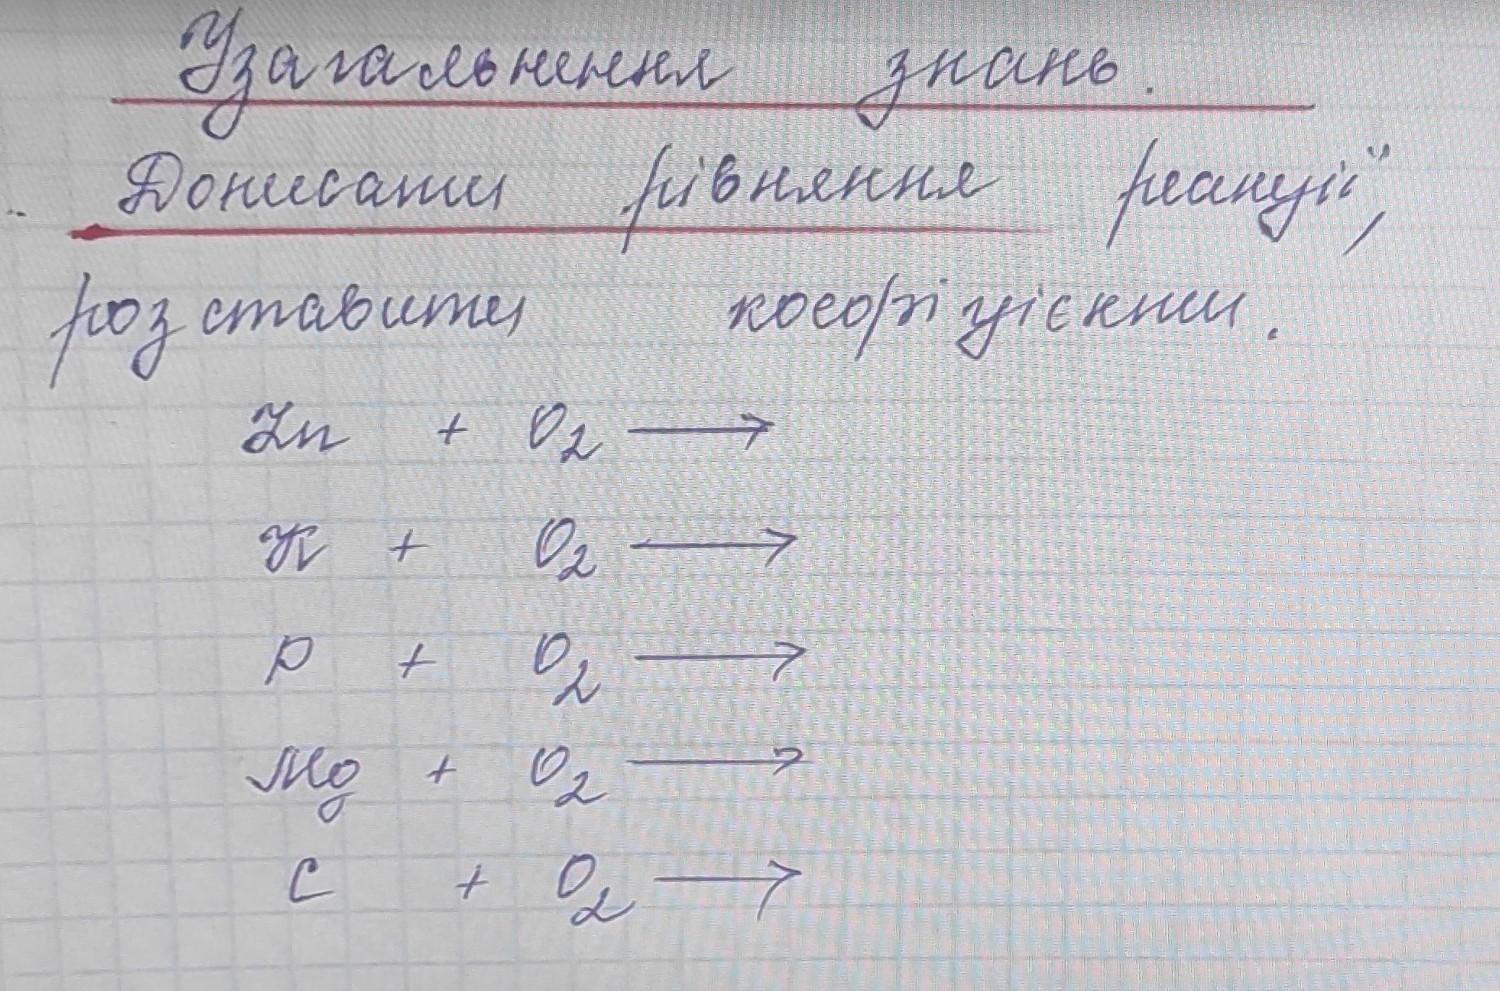 Узагальнення знань.
Дописати рівняння реакції,
розставити коефіцієнти.
Zn + O₂ →
K + O₂ →
P + O₂ →
Mg + O₂ →
C + O₂ →